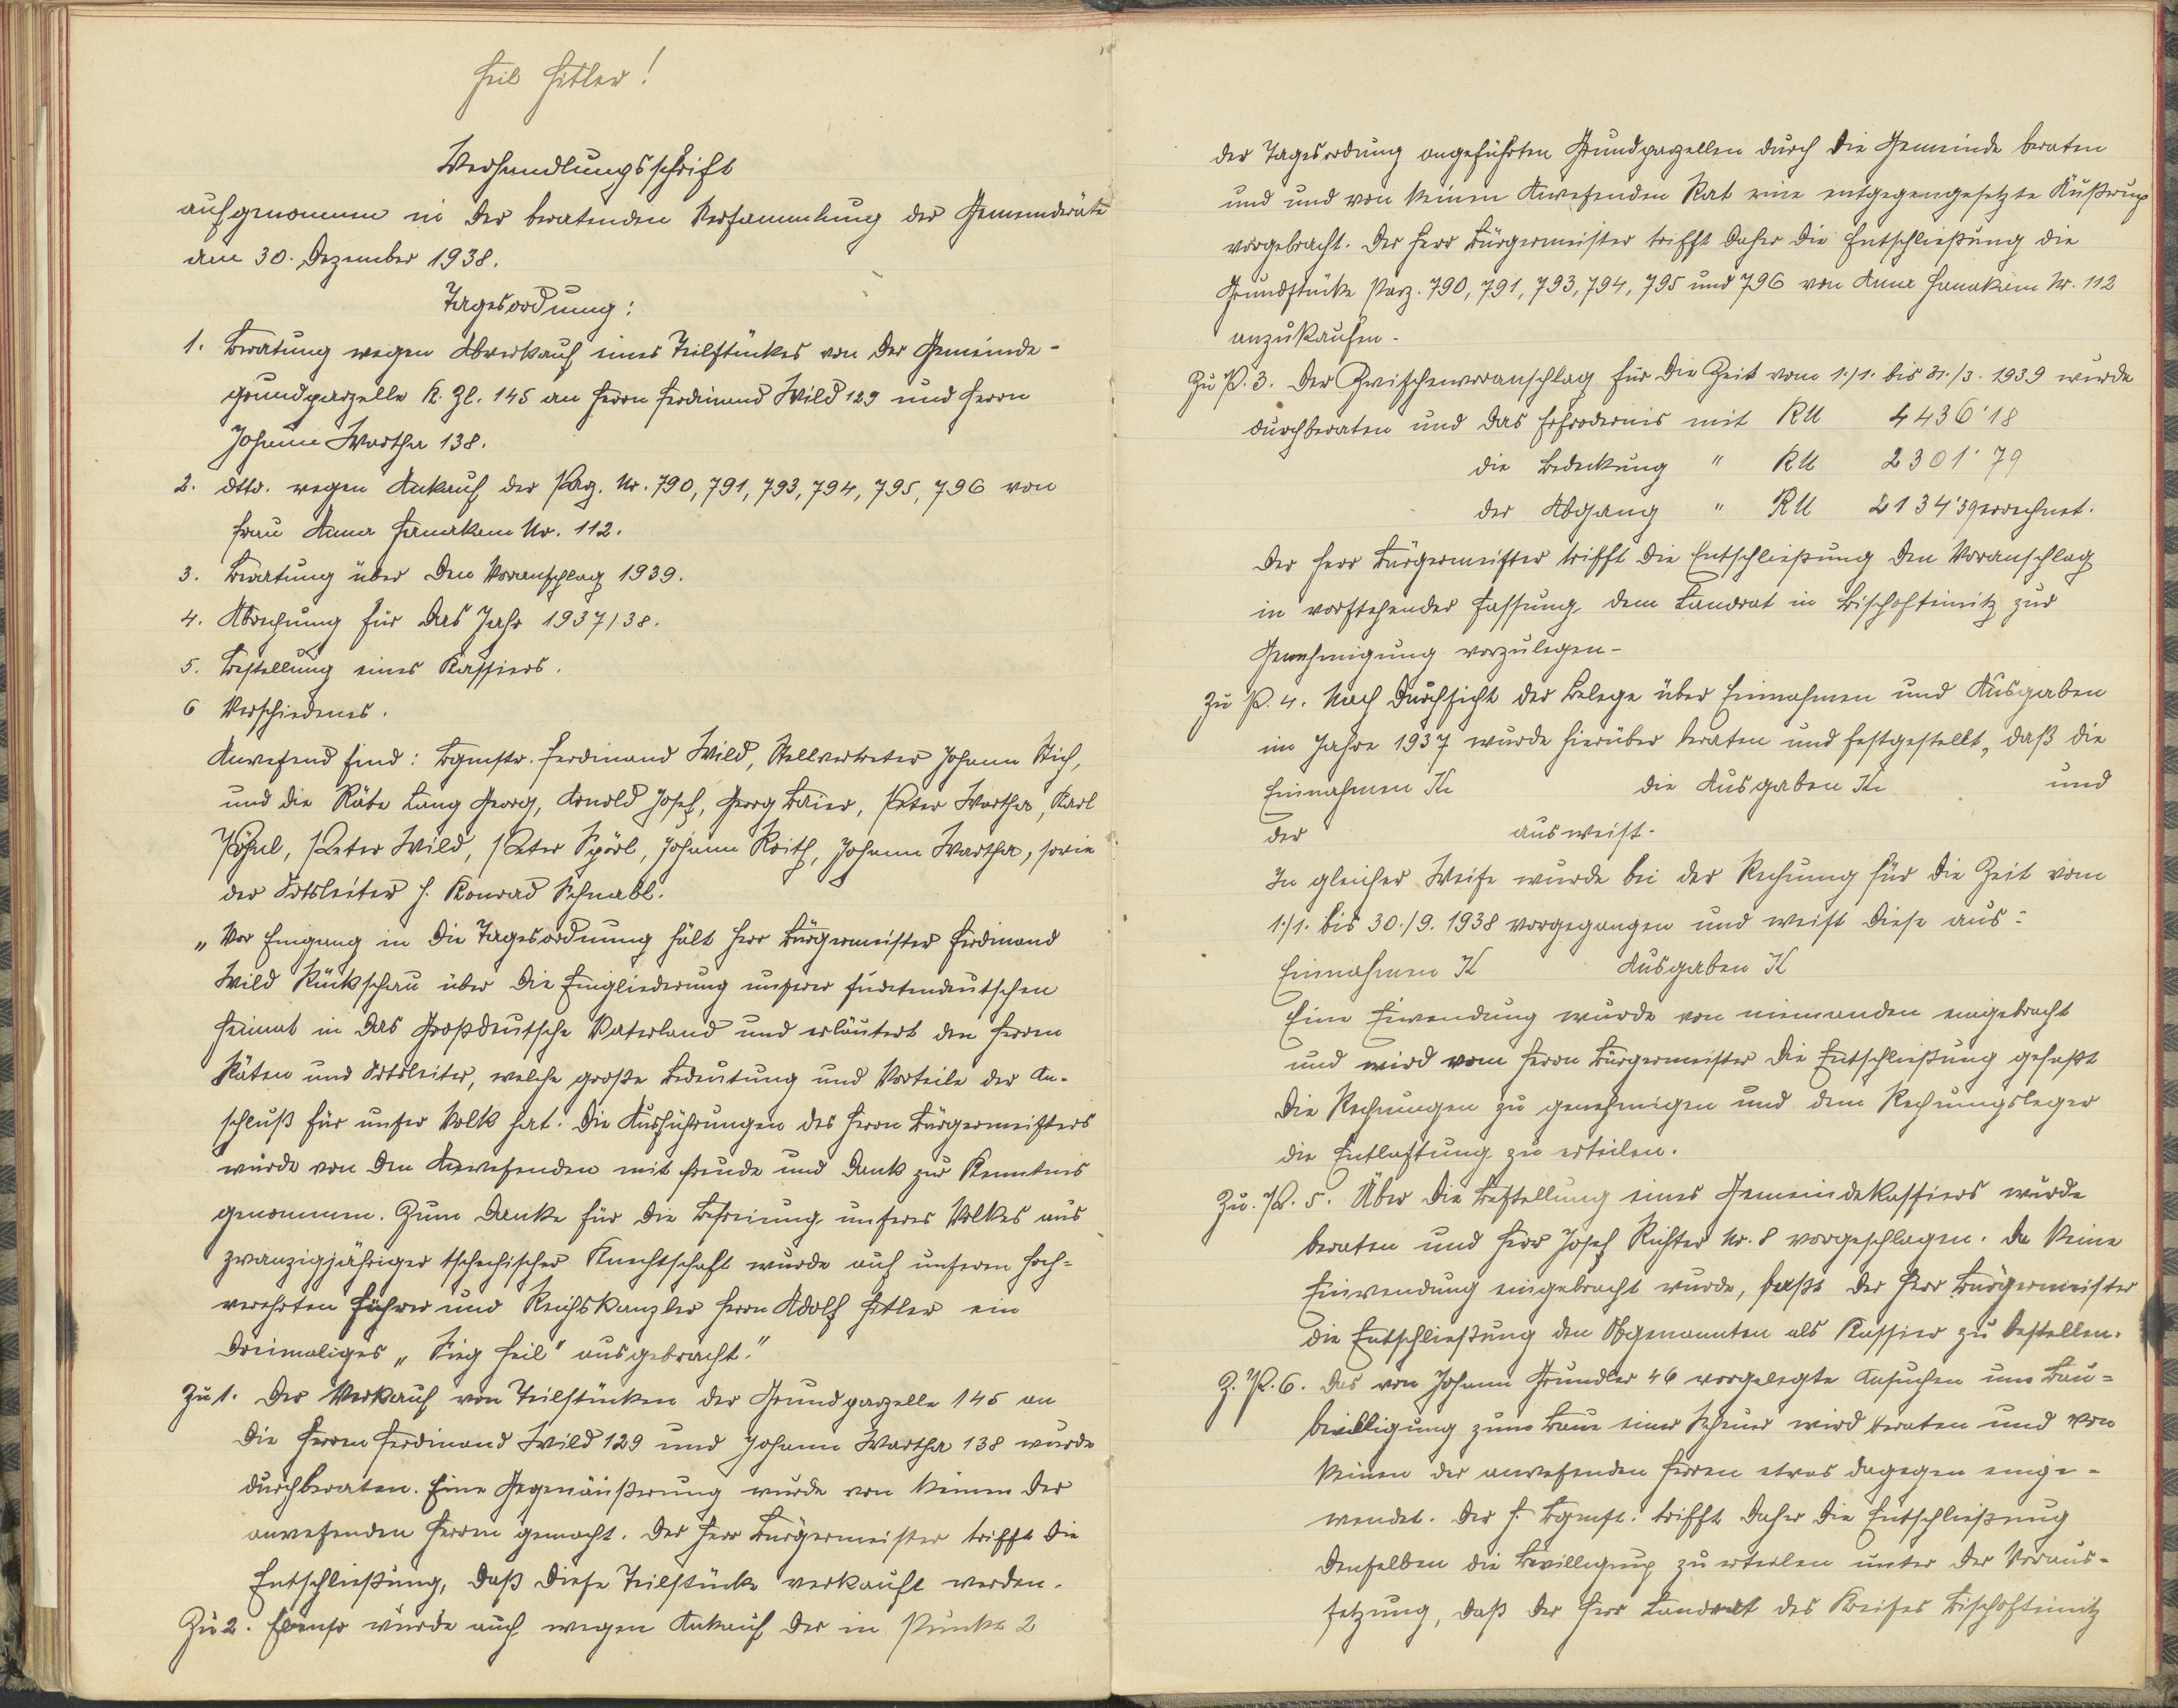 Heil Hitler!
Verhandlungsschrift
aufgenommen in der beratenden Versammlung der Gemeinderäte
am 30. Dezember 1938.
Tagesordnung:
1. Beratung wegen Abverkauf eines Teilstückes von der Gemeinde-
grundparzelle K. Zl. 145 an Herrn Ferdinand Wild 129 und Herrn
Johann Wartha 138.
2. dtto. wegen Ankauf der Parz. Nr. 790, 791, 793, 794, 795, 796 von
Frau Anna Hanakam Nr. 112.
3. Beratung über den Voranschlag 1939.
4. Abrechnung für das Jahr 1937/38.
5. Bestellung eines Kassiers.
6 Verschiedenes.
Anwesend sind: Bgmstr. Ferdinand Wild, Stellvertreter Johann Stich,
und die Räte Lang Georg, Arnold Josef, Georg Baier, Peter Wartha, Karl
Pöhnl, Peter Wild, Peter Spörl, Johann Roith, Johann Wartha, sowie
der Ortsleiter H. Konrad Schnabl.
„Vor Eingang in die Tagesordnung hält Herr Bürgermeister Ferdinand
Wild Rückschau über die Eingliederung unserer sudetendeutschen
Heimat in das Großdeutsche Vaterland und erläutert den Herren
Räten und Ortsleiter, welche große Bedeutung und Vorteile der An-
schluß für unser Volk hat. Die Ausführungen des Herrn Bürgermeisters
wurde von den Anwesenden mit Freude und Dank zur Kenntnis
genommen. Zum Danke für die Befreiung unseres Volkes aus
zwanzigjähriger tschechischer Knechtschaft wurde auf unseren hoch-
verehrten Führer und Reichskanzler Herrn Adolf Hitler ein
dreimaliges „Sieg Heil" ausgebracht."
Zu 1. Der Verkauf von Teilstücken der Grundparzelle 145 an
die Herren Ferdinand Wild 129 und Johann Wartha 138 wurde
durchberaten. Eine Gegenäußerung wurde von keinem der
anwesenden Herren gemacht. Der Herr Bürgermeister trifft die
Entschließung, daß diese Teilstücke verkauft werden.
Zu 2. Ebenso wurde auch wegen Ankauf der in Punkte 2
der Tagesordung angeführten Grundparzellen durch die Gemeinde beraten
und und von keinen Anwesenden Rat eine entgegengesetzte Äußerung
vorgebracht. Der Herr Bürgermeister trifft daher die Entschließung die
Grundstücke Parz. 790, 791, 793, 794, 795 und 796 von Anna Hanakam Nr. 112
anzukaufen.
Zu P. 3. Der Zwischenvoranschlag für die Zeit vom 1./1. bis 31./3. 1939 wurde
durchberaten und das Erfordernis mit RM 4436'18
die Bedeckung " RM 2301'79
der Abgang " RM 2134'39 errechnet.
Der Herr Bürgermeister trifft die Entschließung den Voranschlag
in vorstehender Fassung dem Landrat in Bischofteinitz zur
Genehmigung vorzulegen-
Zu P. 4. Nach Durchsicht der Belege über Einnahmen und Ausgaben
im Jahre 1937 wurde hierüber beraten und festgestellt, daß die
Einnahmen Kc die Ausgaben Kc und
der ausweist.
In gleicher Weise wurde bei der Rechnung für die Zeit vom
1./1. bis 30./9. 1938 vorgegangen und weist diese aus:
Einnahmen K Ausgaben K
Eine Einwendung wurde von niemanden eingebracht
und wird vom Herrn Bürgermeister die Entschließung gefaßt
die Rechnungen zu genehmigen und dem Rechnungsleger
die Entlastung zu erteilen.
Zu. P. 5. Über die Bestellung eines Gemeindekassiers wurde
beraten und Herr Josef Richter Nr. 8 vorgeschlagen. Da keine
Einwendung eingebracht wurde, faßt der Herr Bürgermeister
die Entschließung den Obgenannten als Kassier zu bestellen.
Z. P. 6. Das von Johann Gründler 46 vorgelegte Ansuchen um Bau-
bewilligung zum Baue einer Scheuer wird beraten und von
keinen der anwesenden Herren etwas dagegen einge-
wendet. Der H. Bgmst. trifft daher die Entschließung
denselben die Bewilligung zu erteilen unter der Voraus-
setzung, daß der Herr Landrat des Kreises Bischofteinitz